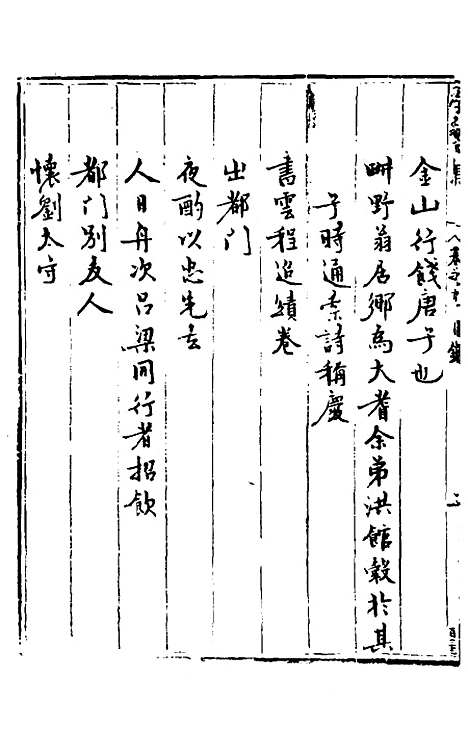 金山行餞唐子也
畊野翁居鄉為大耆余弟洪館穀於其
子時通索詩稱慶
書雲程追績卷
出都門
夜酌以忠先去
人日舟次呂梁同行者招飲
都門別友人
懷劉太守